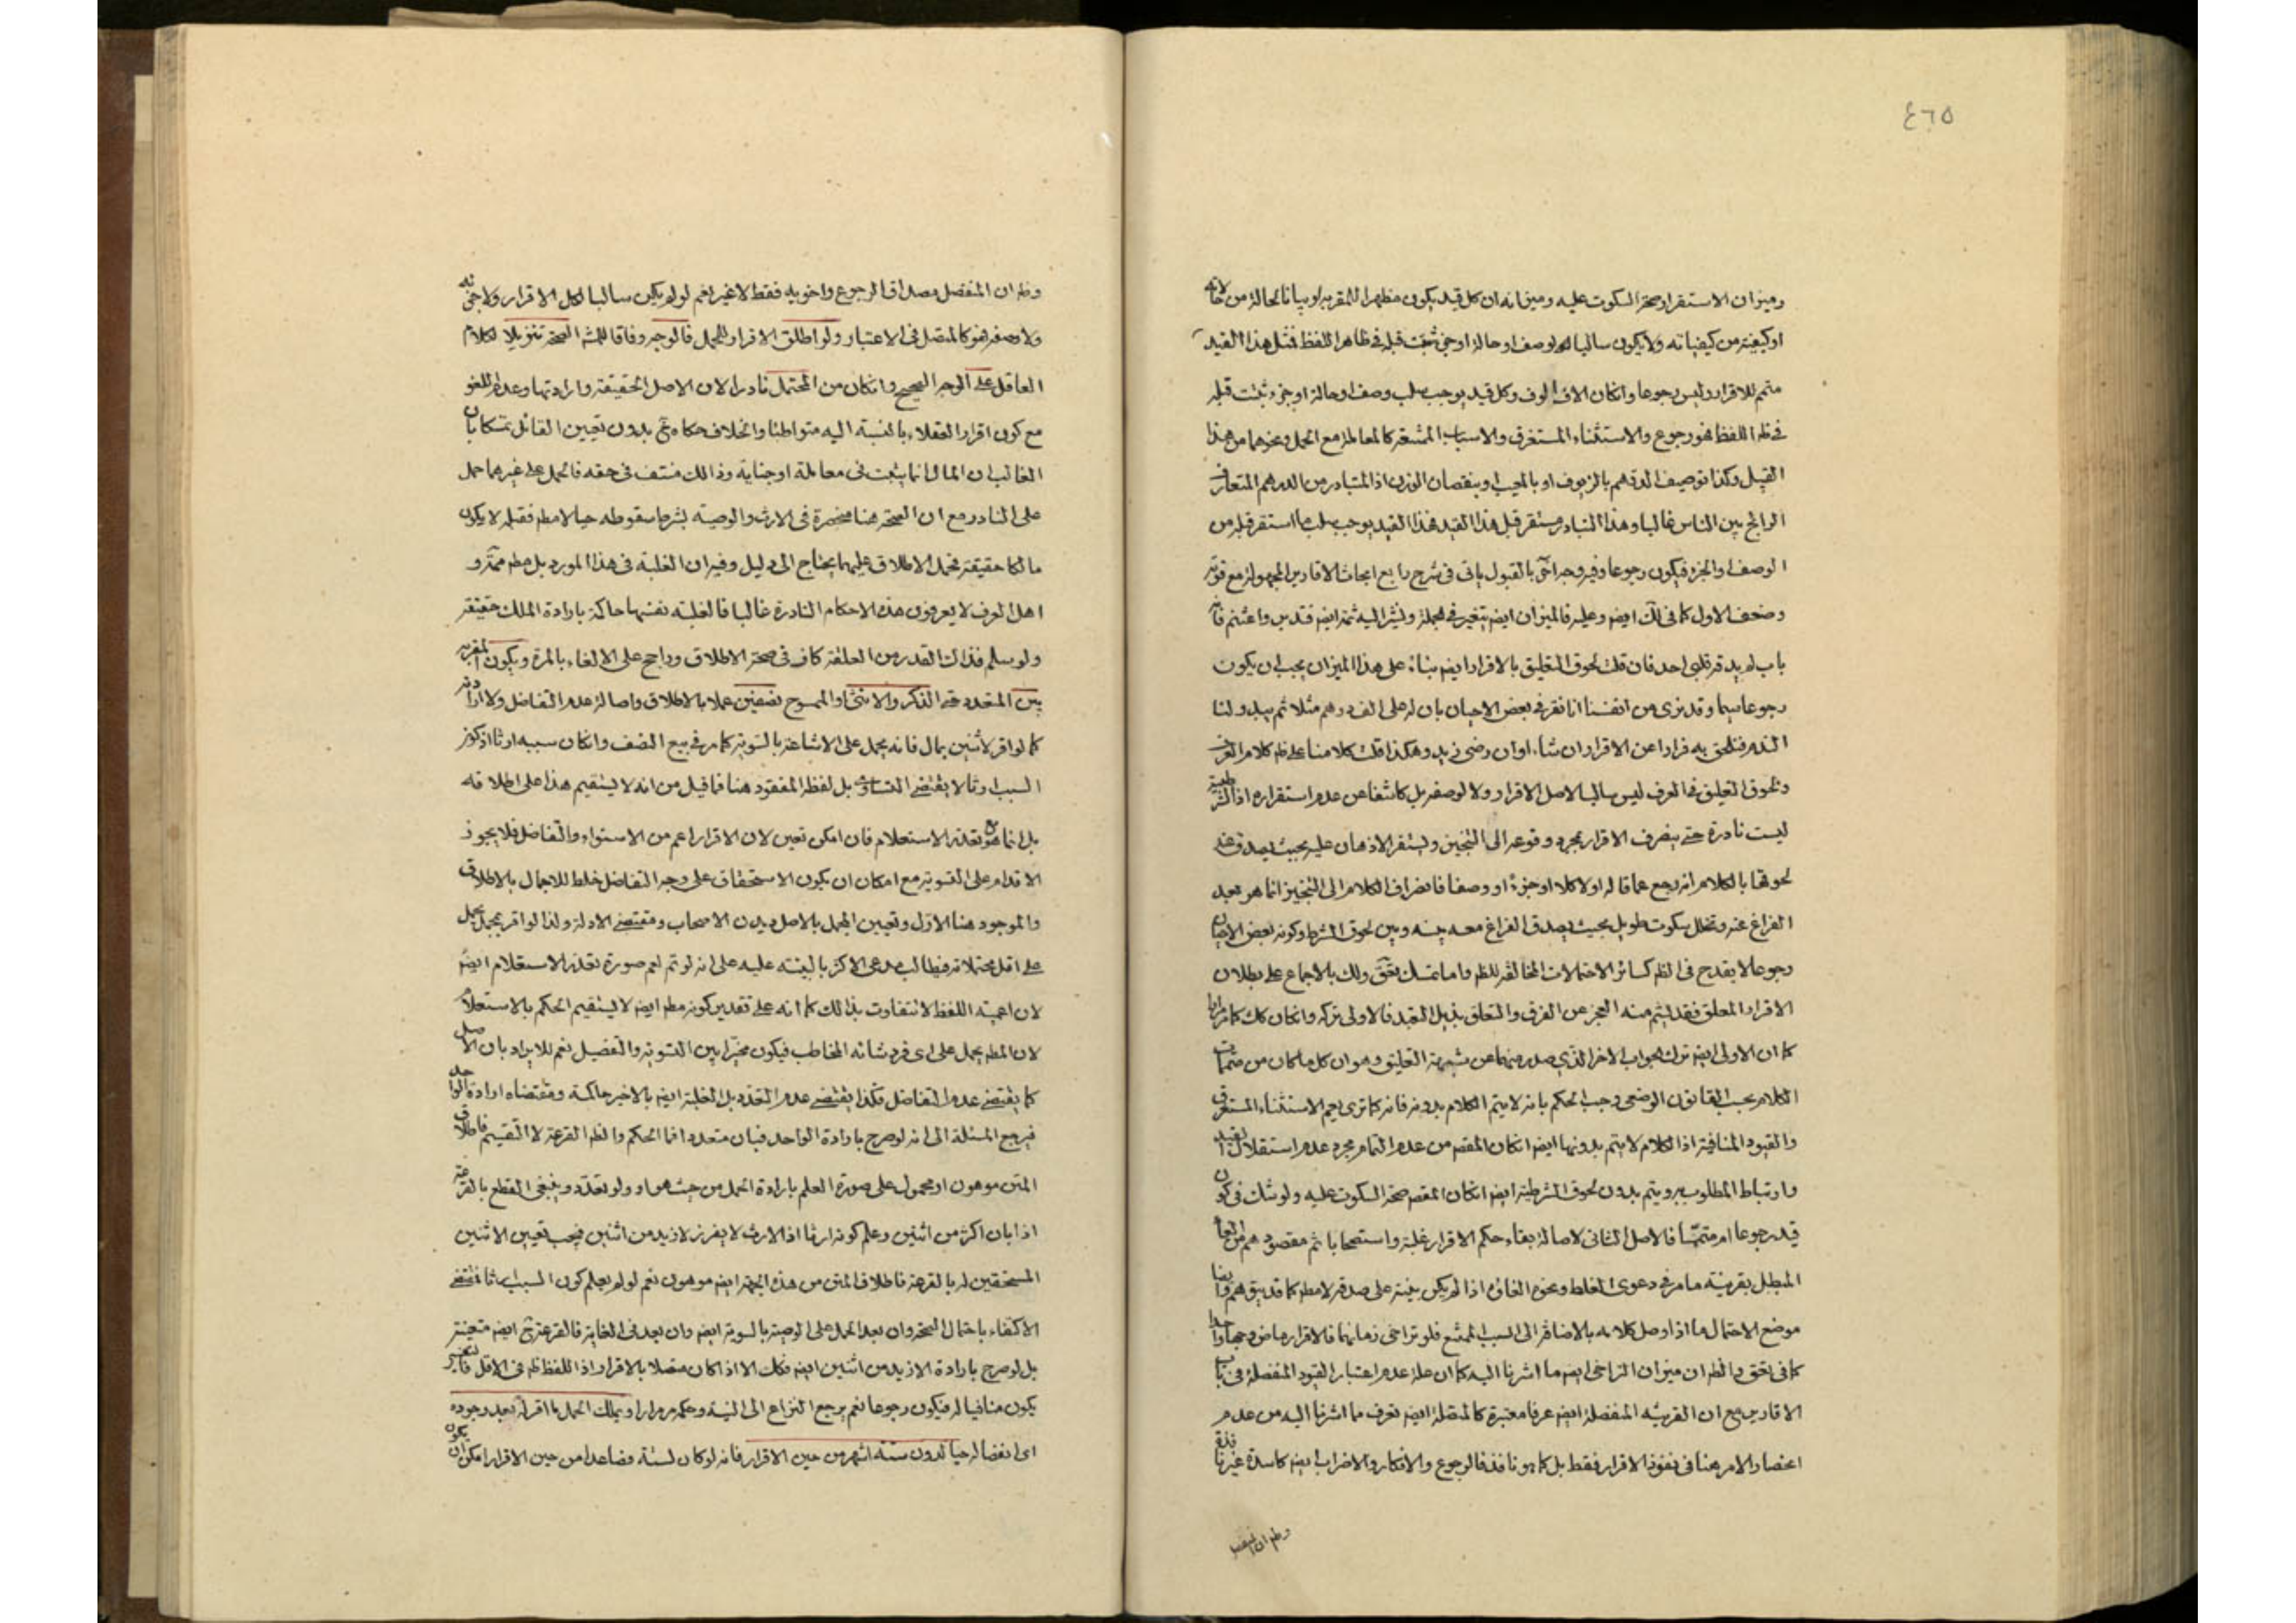 ٤٦٥
وميزان الاستقرار صحة السكوت عليه وميزانه ان كل قيد يكون مظهرا للمقر به او بيانا لحالة من حالاته
او كيفية من كيفياته ولا يكون سالبا لوصف او حالة او جزء ثبت قبله في ظاهر اللفظ فمثل هذا القيد
متمم للاقرار وليس رجوعا وانكان الاف الوف وكل قيد يوجب سلب وصف او حالة او جزء ثبت قبله
في ظ اللفظ فهو رجوع والاستثناء المستغرق والاسباب الممتنعة كالمعاملة مع الحمل ونحوهما من هذا
القبيل وكذا توصيف الدرهم بالزيوف او بالمعيب او بنقصان الوزن اذ المتبادر من الدرهم المتعارف
الرائج بين الناس غالبا وهذا التبادر مستقر قبل هذا القيد فهذا القيد يوجب سلب ما استقر قبله من
الوصف او الجزء فيكون رجوعا وفيه وجه اخر بالقبول ياتي في شرح رابع ابحاث الاقارير المجهولة مع قوته
وضعف الاول كما في لك ايض وعليه فالميزان ايض يتغير في الجملة ونشير اليه ثمة ايض فتدبر واغتنم فانه
باب لم يدقه قلبي احد فان قلت لحوق التعليق بالاقرار ايض بناء على هذا الميزان يجب ان يكون
رجوعا سيما وقد نرى من انفسنا انا نقر في بعض الاحيان بان له على الف درهم مثلا ثم يبدو لنا
الندم فنلحق به فرارا عن الاقرار ان شاء او ان رضي زيد وهكذا قلت كلامنا على ظ كلام العرف
ولحوق التعليق في العرف ليس سالبا لاصل الاقرار ولا لوصفه بل كاشفا عن عدم استقراره اذ الشرطية
ليست نادرة حتى ينصرف الاقرار بمجرد وقوعه الى التنجيز ويستقر الاذهان عليه بحيث يصدق عند
لحوقها بالكلام انه رجع عما قاله اولا كلا او جزءا او وصفا فانصراف الكلام الى التنجيز انما هو بعد
الفراغ عنه وتخلل سكوت طويل بحيث يصدق الفراغ معه بينه وبين لحوق الشرط وكونه بعض الاحيان
رجوعا لا يقدح في الظ كسائر الاحتمالات المخالفة للظ واما تمسك بعض بالاجماع على بطلان
الاقرار المعلق فقد يشم منه العجز عن الفرق والتعلق بذيل التعبد فالاولى تركه وانكان كك كما مر
كما ان الاولى ايض ترك الجواب الاخر الذي صدر منهما عن شبهة التعليق وهو ان كل ما كان من متممات
الكلام بحسب القانون الوضعي وجب الحكم بانه لا يتم الكلام بدونه فانه كما ترى يعم الاستثناء المستغرق
والقيود المنافية اذ الكلام لا يتم بدونها ايض انكان المقص من عدم التمام مجرد عدم استقلال القيد
وارتباط المطلوب به ويتم بدون لحوق الشرطية ايض انكان المقص صحة السكوت عليه ولو شك في كون
قيد رجوعا ام متمما فالاصل الثاني لاصالة بقاء حكم الاقرار غلبة واستصحابا ثم مقصودهم من
المبطل بقرينة ما مر في دعوى الغلط ونحوه الغائه اذا لم يكن بينة على صدقه لا مط كما قد يتوهم
موضع الاحتمال ما اذا وصل كلامه بالاضافة الى السبب الممتنع فلو تراخى زمانهما فالاقرار ماض وجها واحدا
كما في تحق والظ ان ميزان التراخي ايض ما اشرنا اليه كما ان علة عدم اعتبار القيود المنفصلة في باب
الاقارير مع ان القرينة المنفصلة ايض عرفا معتبرة كالمتصلة ايض تعرف مما اشرنا اليه من عدم
انحصار الامر هنا في نفوذ الاقرار فقط بل كما هو نافذ فالرجوع والانكار والاضراب ايض كاسدة غير نافذة
وظ ان المنفصل
وظ ان المنفصل مصداق الرجوع واخويه فقط لا غير نعم لو لم يكن سالبا لكل الاقرار ولا جزئه
ولا وصفه فهو كالمتصل في الاعتبار ولو اطلق الاقرار للحمل فالوجه وفاقا للمش الصحة تنزيلا لكلام
العاقل على الوجه الصحيح وانكان من المحتمل نادرا لان الاصل الحقيقة وارادتها وعدم اللغو
مع كون اقرار العقلاء بالنسبة اليه متواطئا والخلاف حكاه بدون تعيين القائل تمسكا بان
الغالب ان المال انما يثبت في معاملة او جناية وذالك منتف في حقه فالحمل على غيرهما حمل
على النادر مع ان الصحة هنا منحصرة في الارث والوصية بشرط سقوطه حيا لا مط فقبله لا يكون
مالكا حقيقة فحمل الاطلاق عليهما يحتاج الى دليل وفيه ان الغلبة في هذا المورد بل مط ممنوعة و
اهل العرف لا يعرفون هذه الاحكام النادرة غالبا فالغلبة نفسها حاكمة بارادة الملك حقيقة
ولو سلم فذالك القدر من العلقة كاف في صحة الاطلاق وراجح على الالغاء بالمرة ويكون المقر به
بين المتعدد حتى الذكر والانثى والممسوح نصفين عملا بالاطلاق واصالة عدم التفاضل ولا ارادته
كما لو اقر لاثنين بمال فانه يحمل على الاشاعة بالسوية كما مر في بيع النصف وانكان سببه ارثا اذ كون
السبب ارثا لا يقتضي التساوي بل لفظه المفقود هنا فما قيل من انه لا يستقيم هذا على اطلاقه
بل انما هو بتعذر الاستعلام فان امكن تعين لان الاقرار اعم من الاستواء والتفاضل فلا يجوز
الاقدام على التسوية مع امكان ان يكون الاستحقاق على وجه التفاضل خلط للاجمال بالاطلاق
والموجود هنا الاول وتعيين المجمل بالاصل ديدن الاصحاب ومقتضى الادلة ولذا لو اقر بمجمل يحمل
على اقل محتملاته فيطالب مدعي الاكثر بالبينة عليه على انه لو تم لعم صورة تعذر الاستعلام ايض
لان اعمية اللفظ لا تتفاوت بذالك كما انه على تقدير كونه مط ايض لا يستقيم الحكم بالاستعلام
لان المط يحمل على اي فرد شائه المخاطب فيكون مخيرا بين التسوية والتفضيل نعم للايراد بان الاصل
كما يقتضي عدم التفاضل فكذا يقتضي عدم التعدد بل الغلبة ايض بالاخير حاكمة ومقتضاه ارادة الواحد
فيرجع المسئلة الى انه لو صرح بارادة الواحد فبان متعددا فما الحكم والظ القرعة لا التقسيم فاطلاق
المتن موهون او محمول على صورة العلم بارادة الحمل من حيث هو او ولو تعدد وينبغي القطع بالقرعة
اذا بان اكثر من اثنين وعلم كونه ارثا اذ الارث لا يفرز لازيد من اثنين فيجب تعيين الاثنين
المستحقين له بالقرعة فاطلاق المتن من هذه الجهة ايض موهون نعم لو لم يعلم كون السبب ارثا فمقتضى
الاكتفاء باحتمال الصحة وان بعد الحمل على الوصية بالسوية ايض وان بعد في الغاية فالقرعة ح ايض متعينة
بل لو صرح بارادة الازيد من اثنين ايض فكك الا اذا كان متصلا بالاقرار اذ اللفظ ظ في الاقل
يكون منافيا له فيكون رجوعا نعم يرجع النزاع الى النية وحكمه مر مرارا ويملك الحمل ما اقر له بعد وجوده
اى انفصاله حيا لدون ستة اشهر من حين الاقرار فانه لو كان لستة فصاعدا من حين الاقرار امكن ان يكون